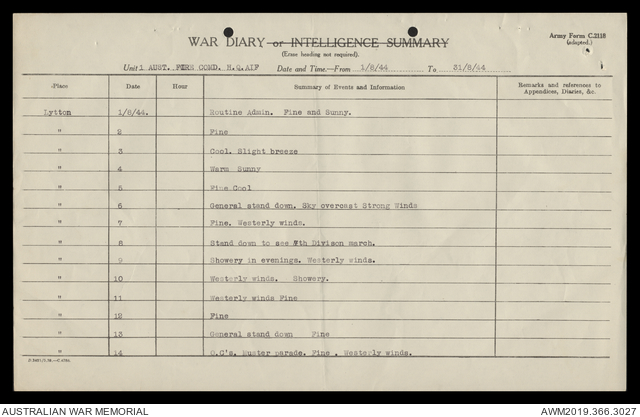 WAR DIARY or INTELLIGENCE SUMMARY
(Erase heading not required).
Army Form C.2118
(adapted.)
Unit 1 AUST. FIRE COMD. H.Q.AIF Date and Time.—From 1/8/44 To 31/8/44
Place Date Hour Summary of Events and Information Remarks and references to Appendices, Diaries, &c.
Lytton 1/8/44. Routine Admin. Fine and Sunny.
" 2 Fine
" 3 Cool. Slight breeze
" 4 Warm Sunny
" 5 Fine Cool
" 6 General stand down. Sky overcast Strong Winds
" 7 Fine. Westerly winds.
" 8 Stand down to see 7th Divison march.
" 9 Showery in evenings. Westerly winds.
" 10 Westerly winds. Showery.
" 11 Westerly winds Fine
" 12 Fine
" 13 General stand down Fine
" 14 O.C's. Muster parade. Fine . Westerly winds.
AUSTRALIAN WAR MEMORIAL AWM2019.366.3027